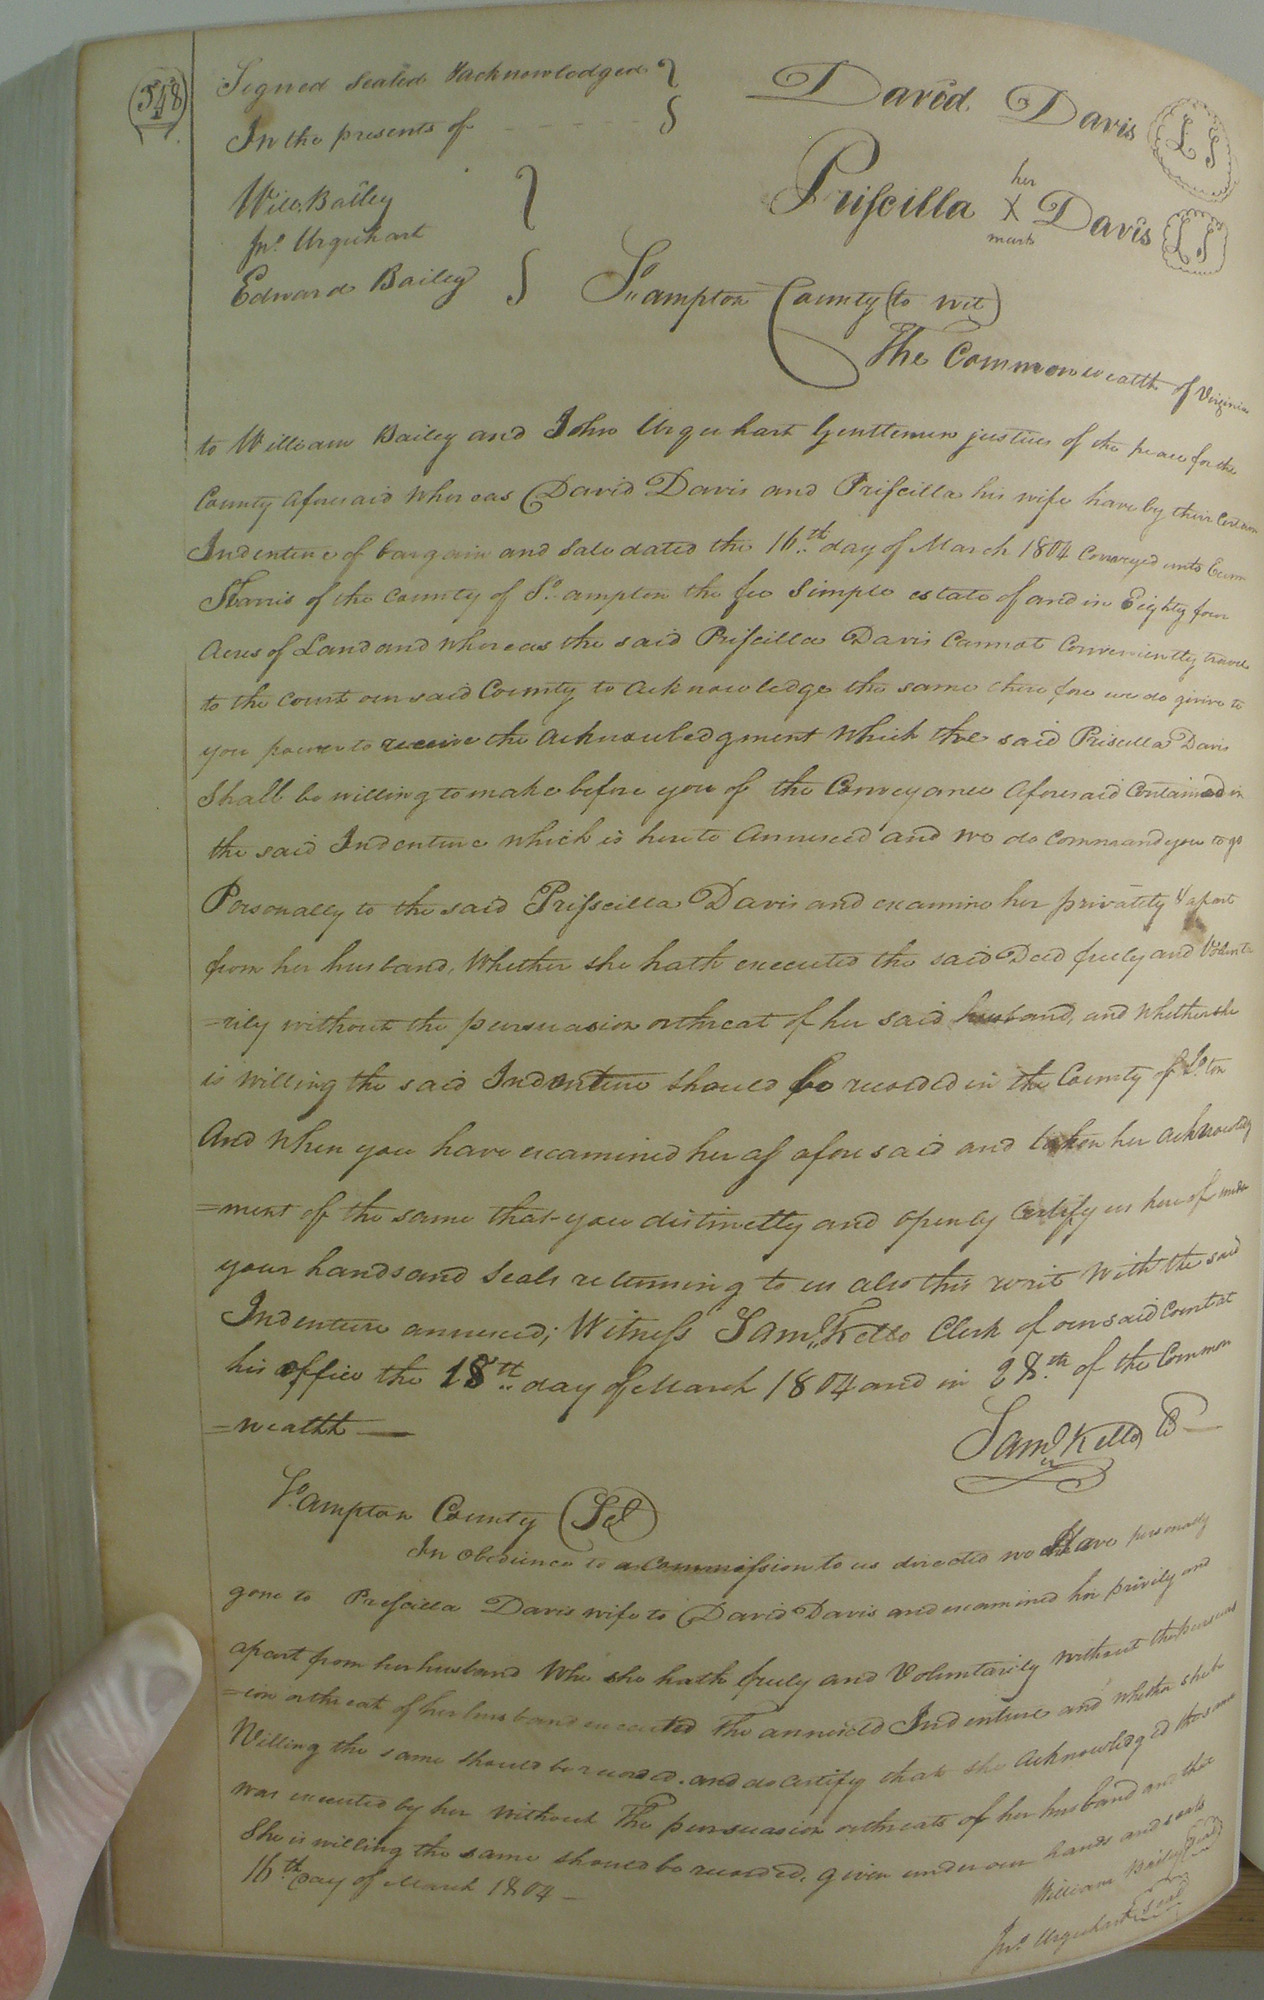 548
Signed Sealed &acknowledged
In the presents of
David Davis LS
Will. Bailey
Jno. Urquhart
Edward Bailey
Prisscilla her X mark Davis LS
So. ampton County (to wit)
The Commonwealth of Virginia
to William Bailey and John Urquhart Gentlemen justices of the peace for the
County aforesaid Whereas David Davis and Prisscilla his wife have by their Certain
Indenture of bargain and Sale dated the 16th. day of March 1804 Conveyed unto
of the County of So. ampton the fee Simple estate of and in Eighty four
Acres of Land and Whereas the said Prisscilla Davis Cannot Conveniently travel
to the Court our said County to acknowledge the same therefore we do give to
you power to receive the acknowledgment Which the said Priscilla Davis
Shall be willing to make before you of the Conveyance aforesaid Contained in
the said Indenture which is hereto annexed and we do command you to go
Personally to the said Prisscilla Davis and examine her privately & apart
from her husband, Whether she hath executed the said Deed freely and Volunta
=rily without the persuasion or threat of her said husband, and Whether she
is willing the said Indenture should be recorded in the County of So. ton
And When you have examined her as aforesaid and taken her acknowledg
=ment of the same that you distinctly and openly Certify us hereof under
your hands and Seals returning to us also this writ With the said
Indenture annexed; Witness Saml. Kello Clerk of our said Court at
his office the 18th. day of March 1804 and in 28th. of the Common
=wealth —
Saml. Kello
So. ampton County Sct
In obedience to a Commission to us directed we Have personally
gone to Prescilla Davis wife to David Davis and examined her privily and
apart from her husband Who she hath freely and Voluntarily without the persuas
=ion or threat of her husband executed The annexed Indenture and whether she be
Willing the same should be recorded. and do Certify that she acknowledged the same
was executed by her without The persuasion or threats of her husband and that
She is willing the same should be recorded, given under our hands and seals
16th Day of March 1804 —
William Baily Seal
Jno. Urquhart Seal